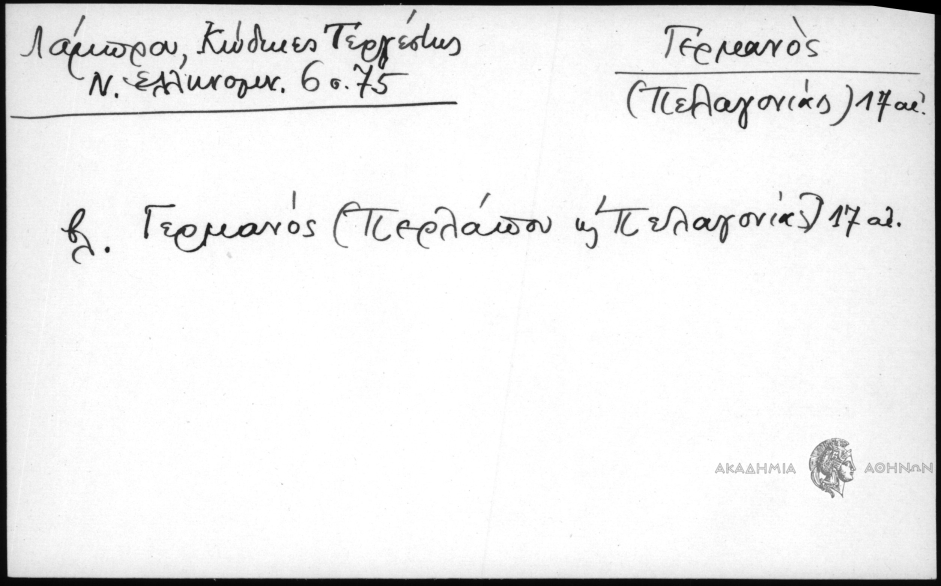 Λάμπρου, Κώδικες Τεργέστης
Ν. Ἑλληνομν. 6 σ. 75
Γερμανὸς
(Πελαγονίας) 17 αἰ.
βλ. Γερμανός (Περλάπου κ Πελαγονίας) 17 αἰ.
ΑΚΑΔΗΜΙΑ ΑΘΗΝΩΝ